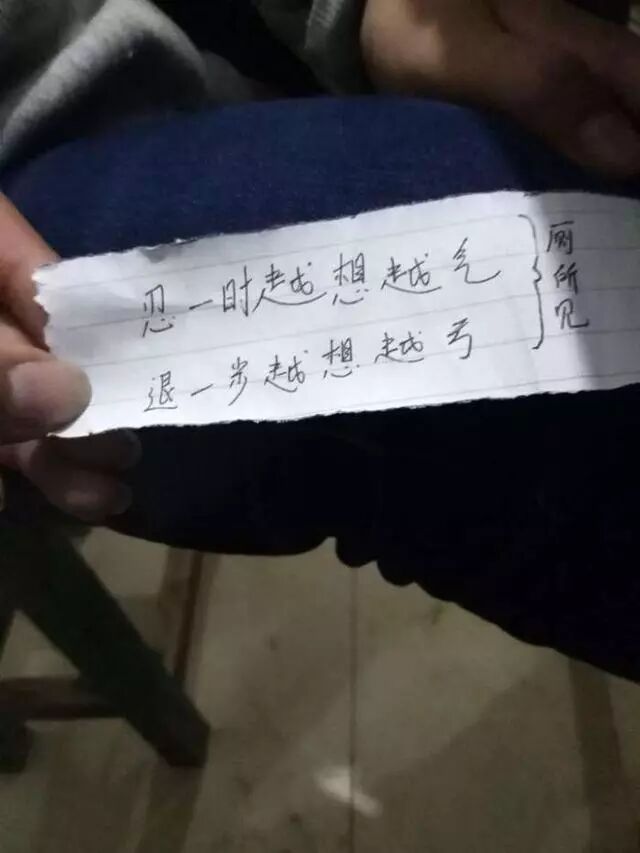 忍一时越想越气
退一步越想越亏
厕所见